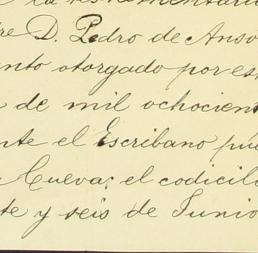 la testamentaria
re D. Pedro de Anso
nto otorgado por est
de mil ochocient
nte el Escribano pú
Cueva; el codicilo
te y seis de Junio